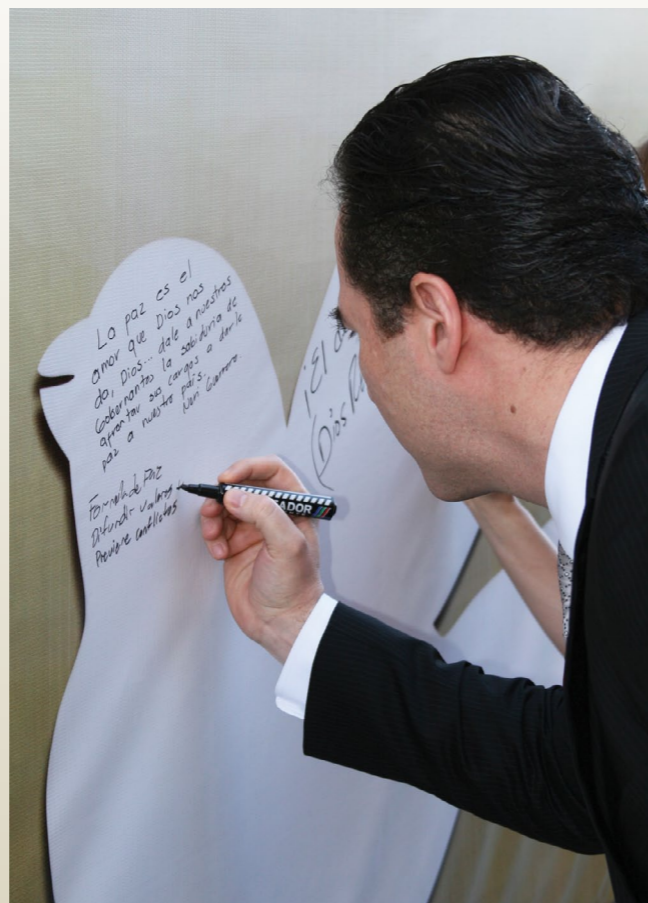 La paz es el
amor que Dios nos
da, Dios... dale a nuestros
Gobernantes la sabiduría de
afrontar sus cargos a darle
paz a nuestro país.
Formula de Paz
Difundir valores
Previene conflictos
¡El
(Dios
ADOR